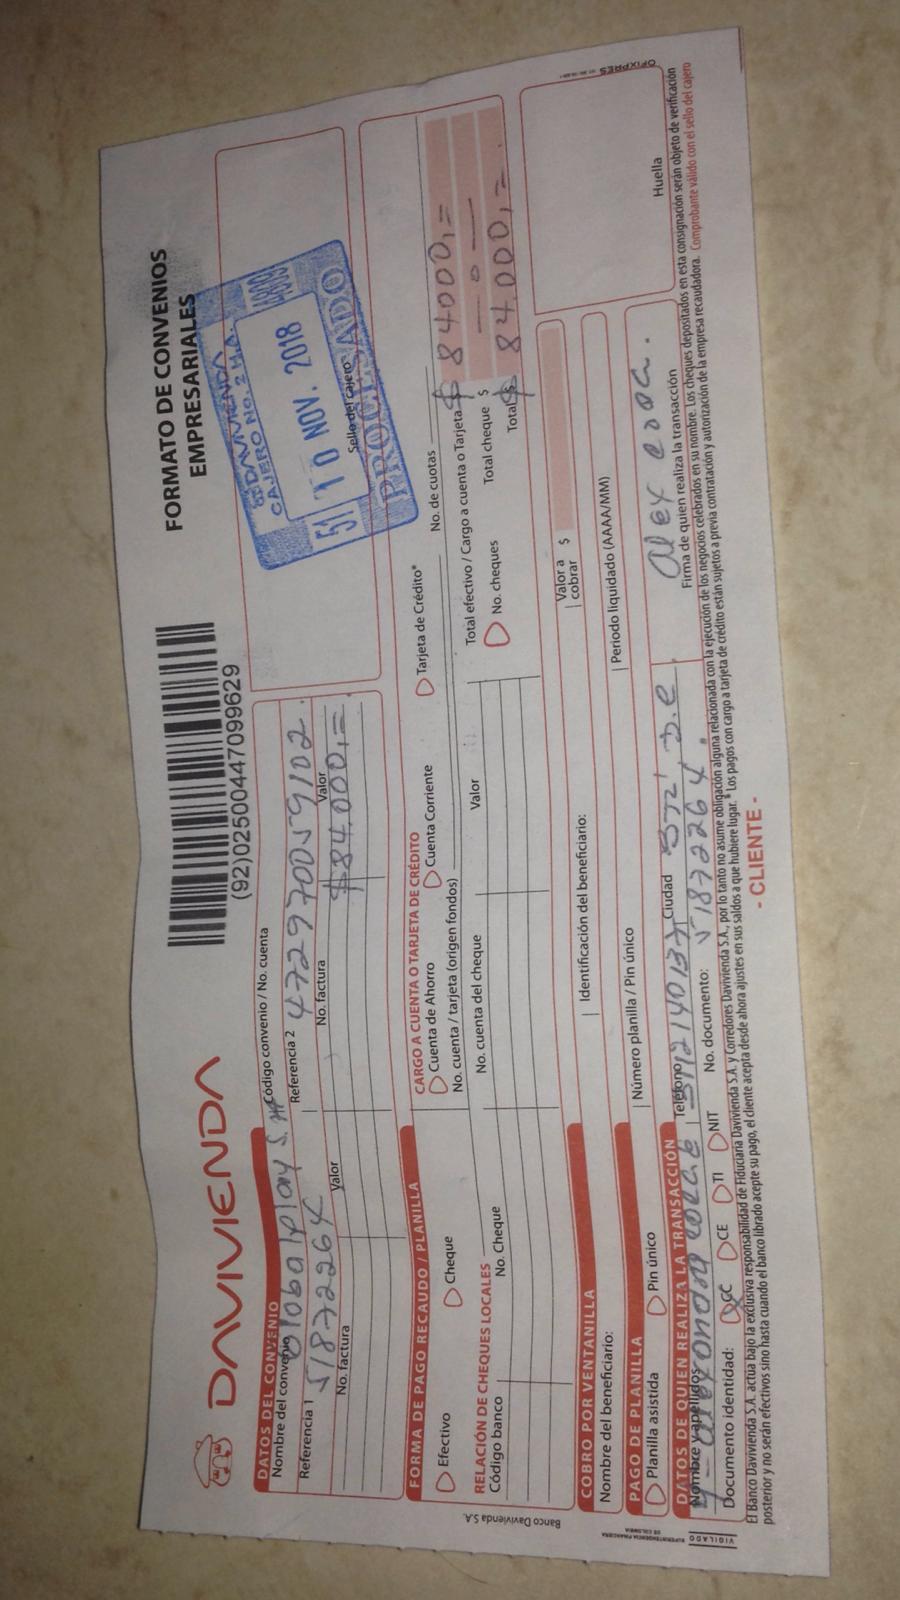 DAVIVIENDA
FORMATO DE CONVENIOS
EMPRESARIALES
(92)02500447099629
DATOS DEL CONVENIO
Nombre del convenio globalplay S.A
Código convenio / No. cuenta
Referencia 1 51872264
Referencia 2 4729700559102
No. factura Valor No. factura Valor
$84.000,=
DAVIVIENDA
CAJERO No. 2 H.A.
51 10 NOV. 2018
Sello del cajero
PROCESADO
FORMA DE PAGO RECAUDO / PLANILLA
Efectivo Cheque
CARGO A CUENTA O TARJETA DE CRÉDITO
Cuenta de Ahorro Cuenta Corriente Tarjeta de Crédito*
No. cuenta / tarjeta (origen fondos) No. de cuotas
RELACIÓN DE CHEQUES LOCALES
Código banco No. Cheque No. cuenta del cheque Valor
Total efectivo / Cargo a cuenta o Tarjeta $ 84000,=
No. cheques Total cheque $ — 0 —
Total $ 84.000,=
COBRO POR VENTANILLA
Nombre del beneficiario: Identificación del beneficiario: Valor a cobrar $
PAGO DE PLANILLA
Planilla asistida Pin único Número planilla / Pin único Periodo liquidado (AAAA/MM)
DATOS DE QUIEN REALIZA LA TRANSACCIÓN
Nombre y apellidos Teléfono Ciudad
Documento identidad: CC CE TI NIT No. documento: 51872264.
Firma de quien realiza la transacción
Huella
El Banco Davivienda S.A. actúa bajo la exclusiva responsabilidad de Fiduciaria Davivienda S.A. y Corredores Davivienda S.A., por lo tanto no asume obligación alguna relacionada con la ejecución de los negocios celebrados en su nombre. Los cheques depositados en esta consignación serán objeto de verificación
posterior y no serán efectivos sino hasta cuando el banco librado acepte su pago, el cliente acepta desde ahora ajustes en sus saldos a que hubiere lugar. * Los pagos con cargo a tarjeta de crédito están sujetos a previa contratación y autorización de la empresa recaudadora. Comprobante válido con el sello del cajero
- CLIENTE -
Banco Davivienda S.A.
VIGILADO SUPERINTENDENCIA FINANCIERA DE COLOMBIA
OFIXPRES